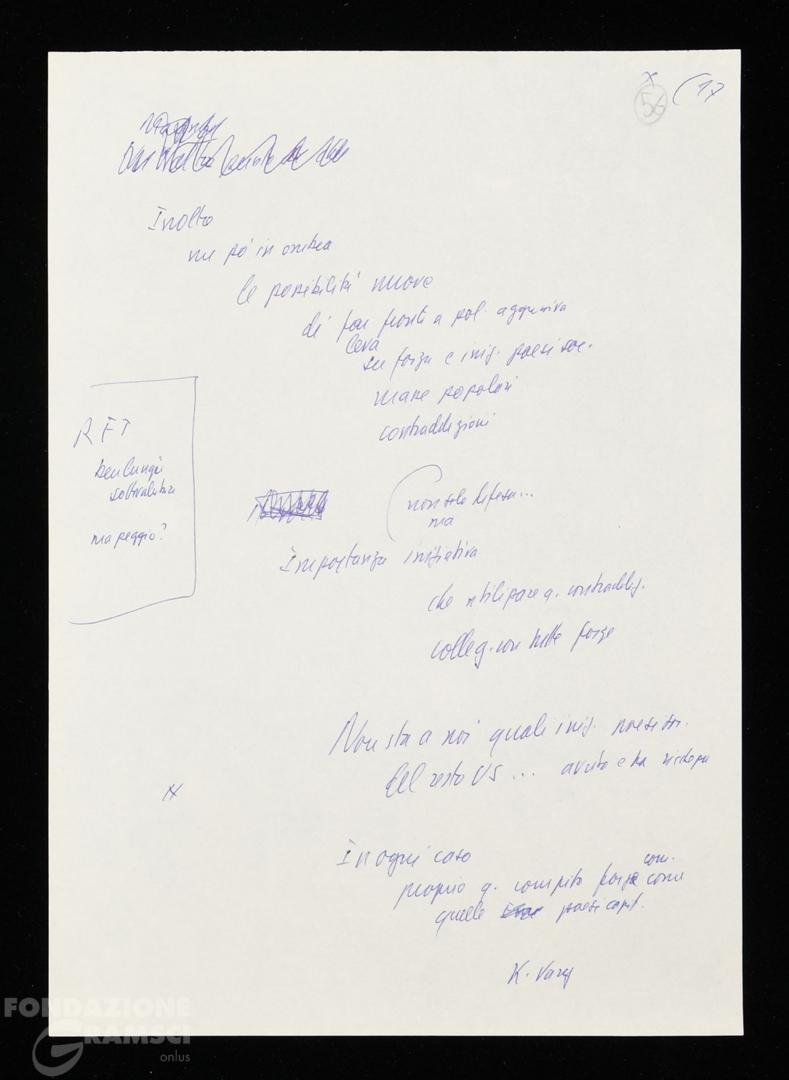 x
56 (17
Inoltre
un po' in ombra
le possibilità nuove
di far fronte a pol. aggressiva
leva
su forza e iniz. paesi soc.
masse popolari
contraddizioni
RFT
sottovalutare
ma peggio?
(non solo difesa...
ma
Importanza iniziativa
che utilizzare q. contraddiz.
colleg. con tutte forze
Non sta a noi quali iniz. paesi soc.
del resto US... avuto e ha
x
In ogni caso
com.
proprio q. compito forze come
quelle paesi capit.
K.
FONDAZIONE
GRAMSCI
onlus